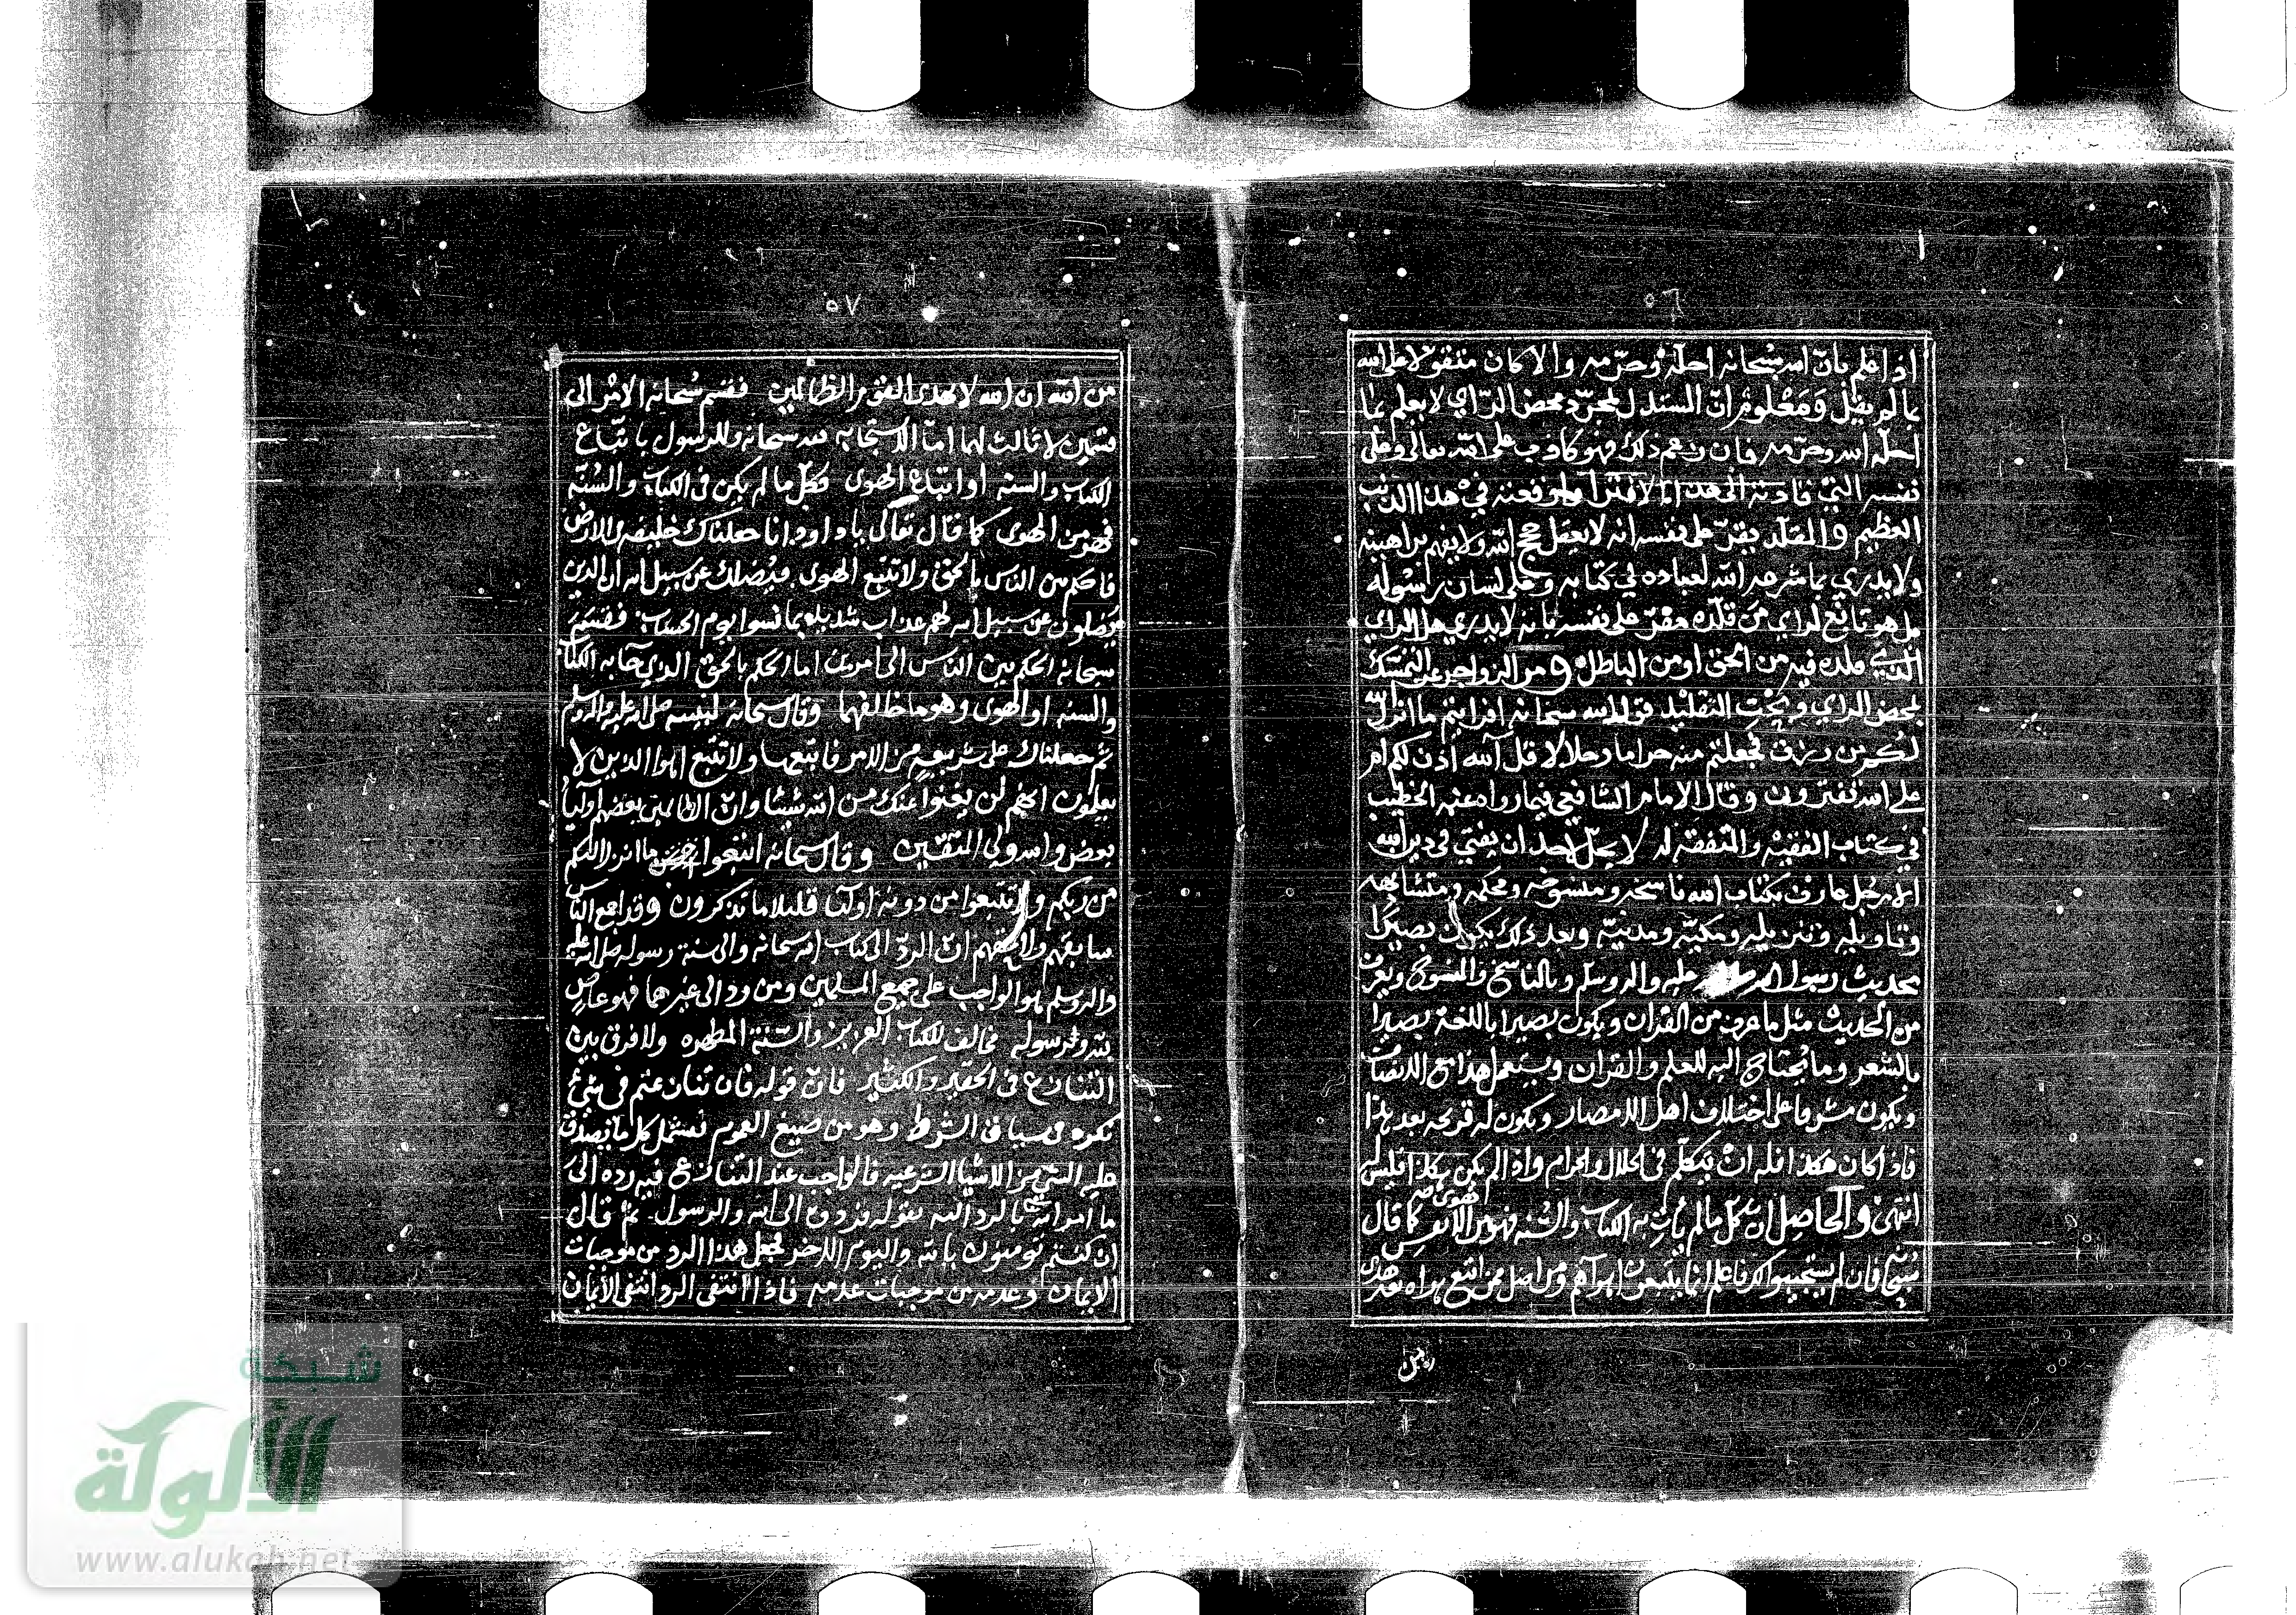 ٥٦
اذا علم بانّ الله سبحانه احلّه وحرّمه والا كان متقولا على الله
بما لم يقل ومعلوم انّ المستدل بمجرّد محض الرّاي لا يعلم بما
احلّه الله وحرّمه فان زعم ذلك فهو كاذب على الله تعالى وعلى
نفسه التي قادته الى هذا الافترا واوقعته في هذا الذنب
العظيم والمقلّد يقرّ على نفسه انه لا يعقل حجج الله ولا يفهم براهينه
ولا يدري بما شرعه الله لعباده في كتابه وعلى لسان رسوله
بل هو تابع لراي من قلّده مقرّ على نفسه بانه لا يدري هل الراي
الذي قلده فيه من الحق او من الباطل ومن الزواجر عن التمسّك
بمحض الراي وبحت التقليد قول الله سبحانه افرايتم ما انزل الله
لكم من رزق فجعلتم منه حراما وحلالا قل آلله أذن لكم ام
على الله تفترون وقال الامام الشافعي فيما رواه عنه الخطيب
في كتاب الفقيه والمتفقه له لا يحلّ لاحد ان يفتي في دين الله
الا رجل عارف بكتاب الله ناسخه ومنسوخه ومحكمه ومتشابهه
وتاويله وتنزيله ومكيّه ومدنيّه وبعد ذلك يكون بصيرًا
بحديث رسول الله صلى عليه واله وسلم وبالناسخ والمنسوخ ويعرف
من الحديث مثل ما عرف من القران ويكون بصيرا باللغة بصيرا
بالشعر وما يحتاج اليه للعلم والقران ويستعمل هذا مع الانصاف
ويكون مشرفا على اختلاف اهل الامصار وتكون له قريحه بعد هذا
فاذا كان هكذا فله انْ يتكلّم في الحلال والحرام واذا لم يكن هكذا فليس
انتهى والحاصل ان كلّ ما لم يأت به الكتاب والسنه فهو من هوى الانفس كما قال
سبحانه فان لم يستجيبوا لك فاعلم انما يتبعون اهوآهم ومن اضل ممن اتبع هواه بغير هدى
من
٥٧
من الله ان الله لا يهدى القوم الظالمين فقسم سُبحانه الامْر الى
قسمين لا ثالث لهما امّا الاستجابه لله سبحانه وللرسول باتّباع
الكتاب والسنه او اتباع الهوى فكلّ ما لم يكن في الكتاب والسُنّه
فهو من الهوى كما قال تعالى يا داود انا جعلناك خليفه في الارض
فاحكم بين الناس بالحق ولا تتبع الهوى فيُضلك عن سبيل الله ان الذين
يُضلون عن سبيل الله لهم عذاب شديد بما نسوا يوم الحساب فقسّم
سبحانه الحكم بين الناس الى امرين اما الحكم بالحق الذي جآ به الكتاب
والسنه او الهوى وهو ما خالفهما وقال سبحانه لنبيه صلى الله عليه واله وسلم
ثم جعلناك على شريعهٍ من الامر فاتبعها ولا تتّبع اهوآ الذين لا
يعلمون انهم لن يغنوا عنك من الله شيئا وانّ الظالمين بعضهم اوليآ
بعض والله ولي المتقين وقال سبحانه اتبعوا ما انزل اليكم
من ربكم ولا تتبعوا من دونه اوليآ قليلا ما تذكرون وقد اجمع النّاس
سابقهم ولاحقهم انّ الردّ الى كتاب الله سبحانه والى سنة رسوله صلى الله عليه
واله وسلم هو الواجب على جميع المسلمين ومن رد الى غيرها فهو عاصٍ
لله ولرسوله مخالف للكتاب العزيز والسنة المطهره ولا فرق بين
التنازع في الحقير والكثير فانّ قوله فان تنازعتم في شيءٍ
نكره في سياق الشرط وهو من صيغ العموم فتشمل كل ما يصدق
عليه الشي من الاشيا الشرعيه فالواجب عند التنازع فيه رده الى
ما امر الله بالرد اليه بقوله فردوه الى الله والرسول ثم قال
ان كنتم تومنون بالله واليوم الاخر فجعل هذا الرد من موجبات
الايمان وعدمه من موجبات عدمه فاذا انتفى الرد انتفى الايمان
شبكة
الألوكة
www.alukah.net